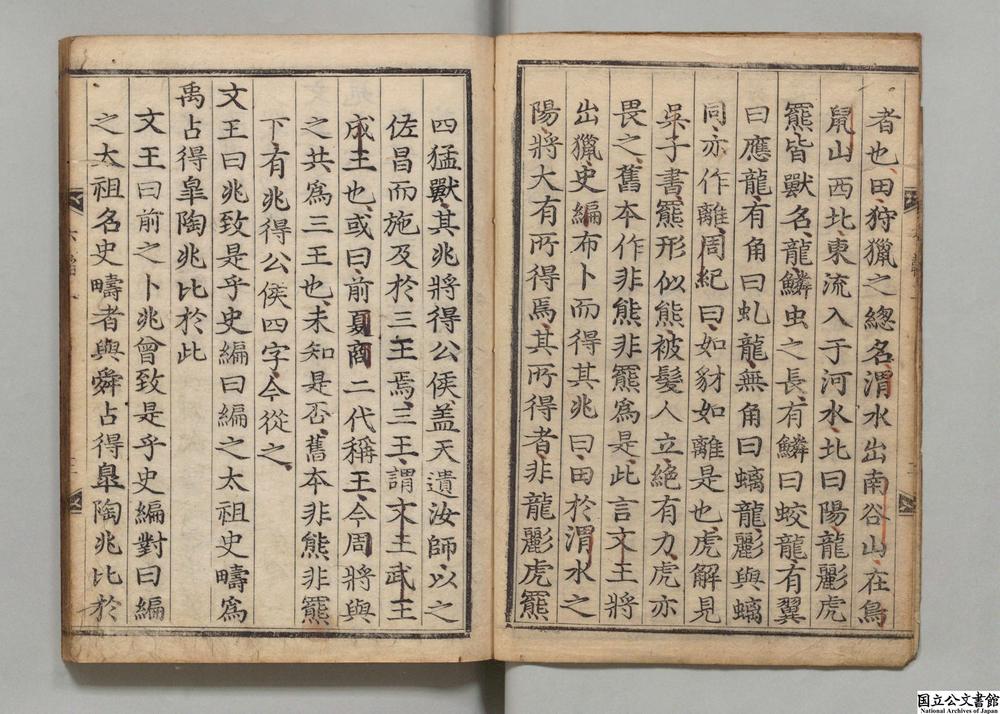 者也田狩獵之緫名渭水出南谷山在鳥
鼠山西北東流入于河水北曰陽龍彲虎
羆皆獸名龍鱗虫之長有鱗曰蛟龍有翼
曰應龍有角曰虬龍無角曰螭龍彲與螭
同亦作離周紀曰如豺如離是也虎解見
吳子書羆形似熊被髮人立絶有力虎亦
畏之舊本作非熊非羆爲是此言文王將
出獵史編布卜而得其兆曰田於渭水之
陽將大有所得焉其所得者非龍彲虎羆
四猛獸其兆將得公侯盖天遺汝師以之
佐昌而施及於三王焉三王謂文王武王
成王也或曰前夏商二代稱王今周將與
之共爲三王也未知是否舊本非熊非羆
下有兆得公侯四字今從之
文王曰兆致是乎史編曰編之太祖史疇爲
禹占得臯陶兆比於此
文王曰前之卜兆曾致是乎史編對曰編
之太祖名史疇者與舜占得臯陶兆比於
六韜
国立公文書館
National Archives of Japan